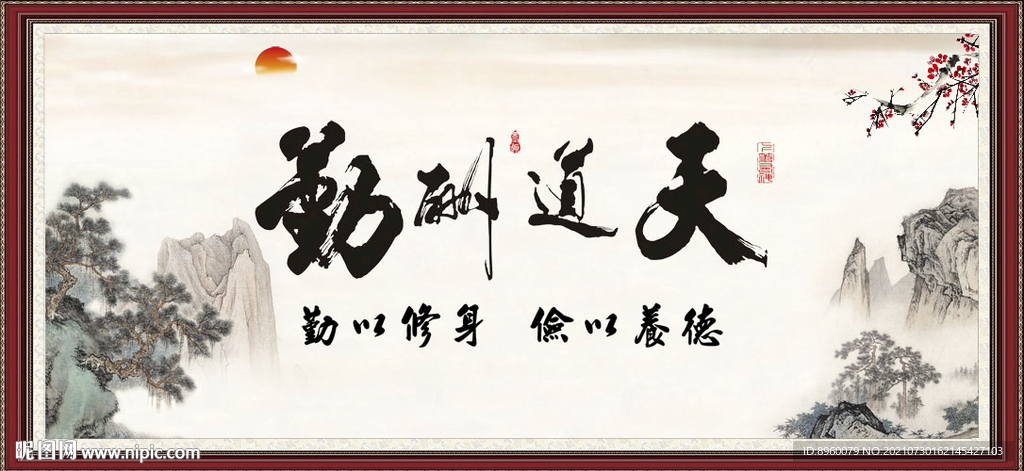 天道酬勤
勤以修身 儉以養德
昵图网 www.nipic.com
ID:8960079 NO.20210730162145427103